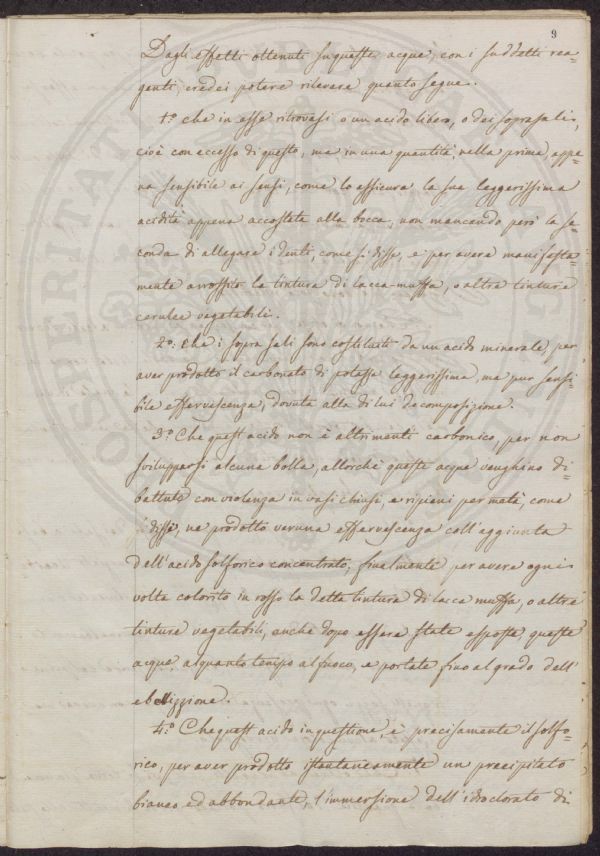 9
Dagli effetti ottenuti su queste acque, con i suddetti rea=
genti, credei potere rilevare quanto segue.
1.º che in esse ritrovasi o un acido libero, o dei soprasali,
cioè con eccesso di questo, ma in una quantità, nella prima, appe=
na sensibile ai sensi, come lo assicura la sua leggerissima
acidità appena accostata alla bocca, non mancando però la se=
conda di allegare i denti, come si disse, e per avere manifesta=
mente arrossito la tintura di lacca-muffa, o altre tinture
cerulee vegetabili.
2.º che i sopra sali sono costituiti da un acido minerale, per
aver prodotto il carbonato di potassa leggerissima, ma pur sensi=
bile effervescenza, dovuta alla di lui decomposizione.
3.º Che quest'acido non è altrimenti carbonico, per non
svilupparsi alcuna bolla, allorchè queste acque venghino di=
battute con violenza in vasi chiusi, e ripieni per metà, come
dissi, ne prodotto veruna effervescenza coll'aggiunta
dell'acido solforico concentrato; finalmente per avere ogni
volta colorito in rosso la detta tintura di lacca muffa, o altre
tinture vegetabili, anche dopo essere state esposte queste
acque alquanto tempo al fuoco, e portate fino al grado dell'
ebollizzione.
4.º Che quest'acido in questione, è precisamente il solfo=
rico, per aver prodotto istantaneamente un precipitato
bianco ed abbondante, l'immersione dell'idroclorato di
OSPERITATI PUBLICAE AUGENDAE